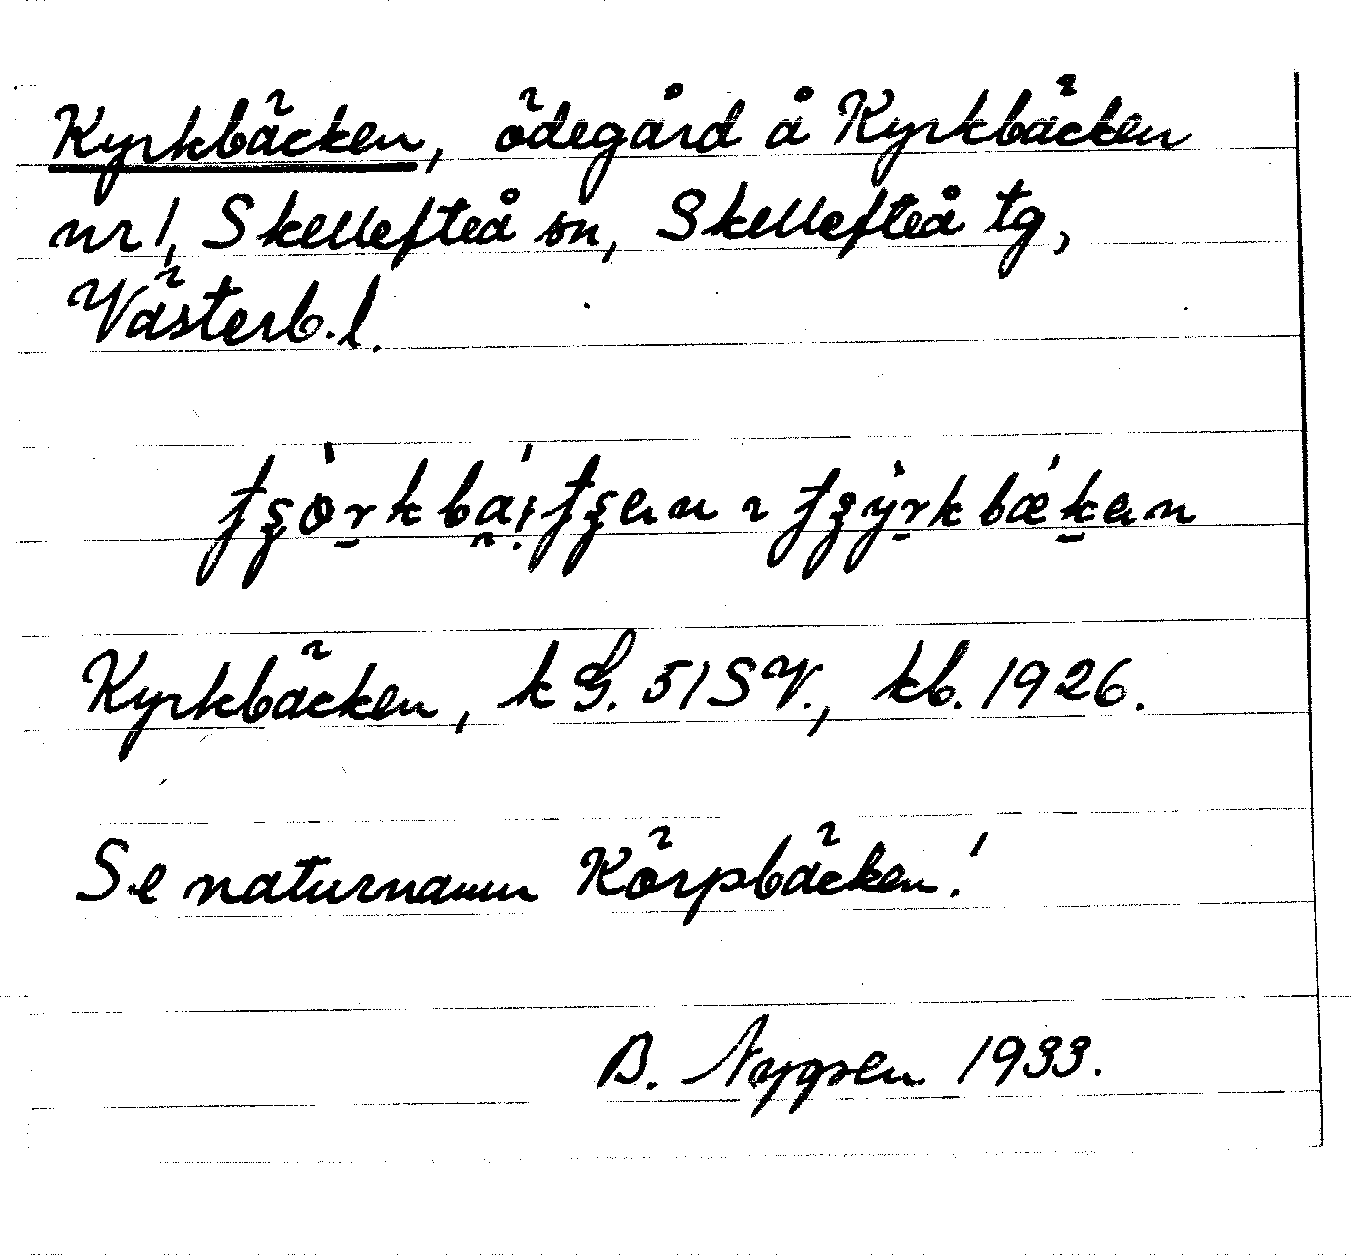 Kyrkbäcken, ödegård å Kyrkbäcken
nr 1, Skellefteå sn, Skellefteå tg,
Västerb. l.
Kyrkbäcken, k G. 51 SV., kb. 1926.
Se naturnamn Körpbäcken!
B. Nygren 1933.